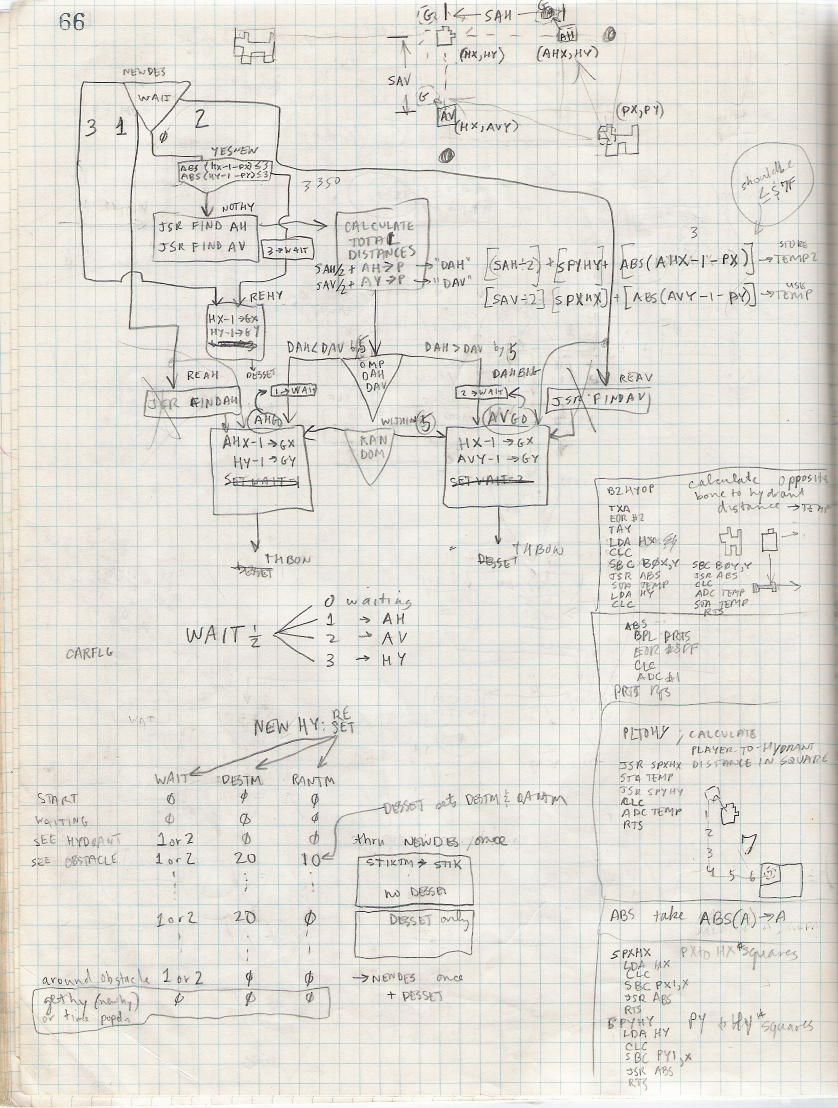 66
G ← SAH → G
AH
(HX,HY)
(AHX,HY)
SAV
G
AV
(HX,AVY)
(PX,PY)
NEWDES
WAIT
3 1 0 2
YESNEW
ABS(HX-1-PX)≤3
ABS(HY-1-PY)≤3
3 350
should be
≤$7F
NOTHY
JSR FIND AH
JSR FIND AV
3→WAIT
CALCULATE
TOTAL
DISTANCES
SAH/2 + AH→P → "DAH"
SAV/2 + AV→P → "DAV"
3
[SAH÷2] + [SPYHY] + [ABS(AHX-1-PX)] → STORE TEMP2
[SAV÷2] [SPXHX] + [ABS(AVY-1-PY)] → USE TEMP
REHY
HX-1→GX
HY-1→GY
DESSET
DAH<DAV by 5
DAH>DAV by 5
CMP
DAH
DAV
DAHBIG
REAH
JSR FINDAH
1→WAIT
AHGO
2→WAIT
AVGO
REAV
JSR FINDAV
WITHIN 5
RAN
DOM
AHX-1→GX
HY-1→GY
SET WAIT=1
HX-1→GX
AVY-1→GY
SET WAIT=2
DESSET THBON
DESSET THBON
B2HYOP
calculate opposite
bone to hydrant
distance → TEMP
TXA
EOR #2
TAY
LDA HX
CLC
SBC BØX,Y
JSR ABS
STA TEMP
LDA HY
CLC
SBC BØY,Y
JSR ABS
CLC
ADC TEMP
STA TEMP
RTS
WAIT ½
0 waiting
1 → AH
2 → AV
3 → HY
CARFLG
ABS
BPL PRTS
EOR #$FF
CLC
ADC #1
PRTS RTS
WAIT
NEW HY: RE
SET
WAIT DESTM RANTM
START Ø Ø Ø
WAITING Ø Ø Ø
SEE HYDRANT 1 or 2 Ø Ø thru NEWDES once
SEE OBSTACLE 1 or 2 20 10
DESSET sets DESTM & RANTM
STIKTM → STIK
no DESSET
1 or 2 20 Ø
DESSET only
around obstacle 1 or 2 Ø Ø → NEWDES once
+ DESSET
get hy (newhy) Ø Ø Ø
or time popdn
PLTOHY ; CALCULATE
PLAYER-TO-HYDRANT
DISTANCE IN SQUARE
JSR SPXHX
STA TEMP
JSR SPYHY
CLC
ADC TEMP
RTS
1
2
3
4 5 6
7
ABS take ABS(A)→A
SPXHX PX to HX # squares
LDA HX
CLC
SBC PX1,X
JSR ABS
RTS
SPYHY PY to HY # squares
LDA HY
CLC
SBC PY1,X
JSR ABS
RTS